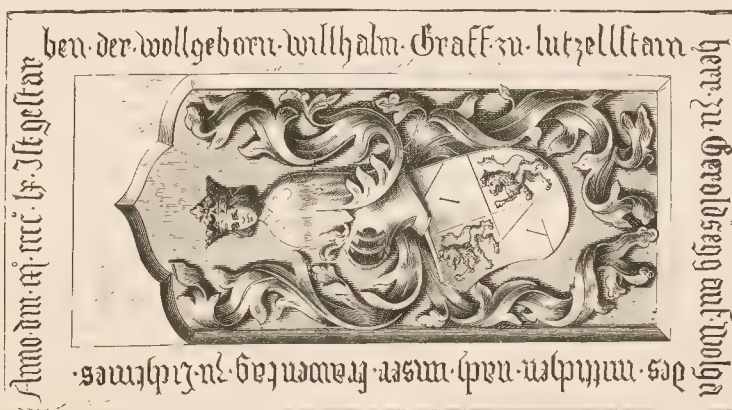 Anno·dm· lx·Ist·gestar
ben·der·wollgeborn·willhalm·Graff·zu·lutzellstain
herr·zu·Geroldsegg
des·mittichen·nach·unser·frawentag·zu·Lichtmes·